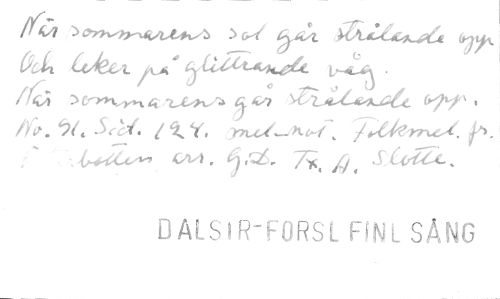 När sommarens sol går strålande opp
Och leker på glittrande våg.
När sommarens går strålande opp.
No. 91. Sid. 124. mel-not. Folkmel. fr.
botten arr. G.D. Tx. A. Slotte.
DALSIR-FORSL FINL SÅNG